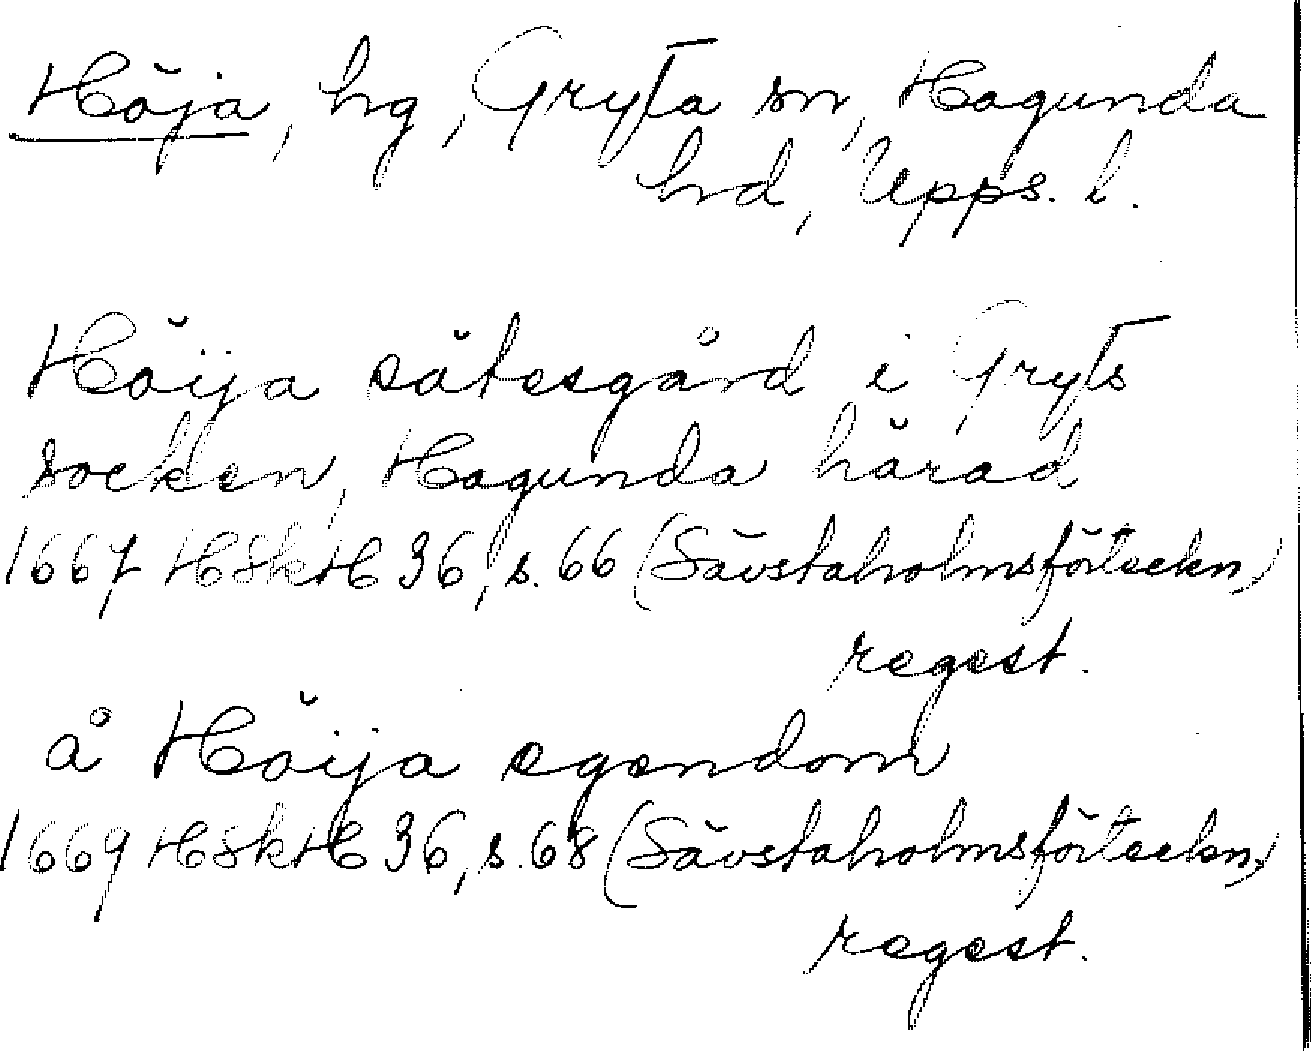 Höja, hg, Gryta sn, Hagunda
hrd, Upps. l.
Höija sätesgård i Gryts
socken, Hagunda härad
1667 HSkH 36, s. 66 (Sävstaholmsförteckn.)
regest.
å Höija egendom
1669 HSkH 36, s. 68 (Sävstaholmsförteckn.)
regest.